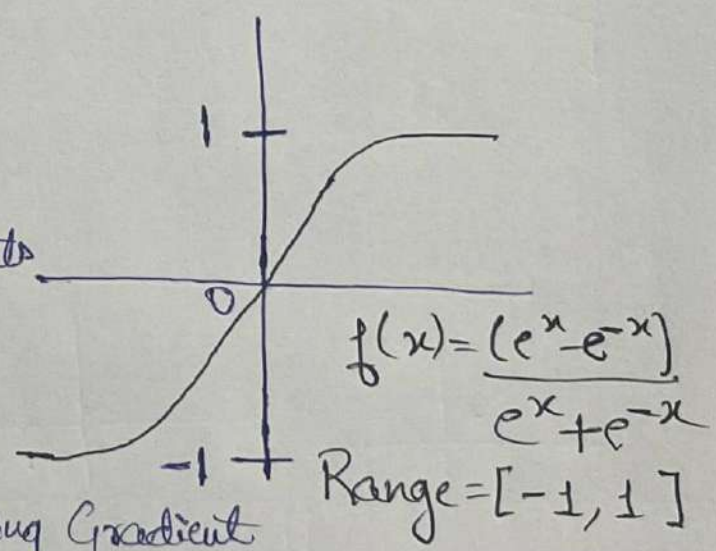 1
0
f(x)=(e^x-e^-x)
e^x+e^-x
-1
Range=[-1, 1]
Gradient